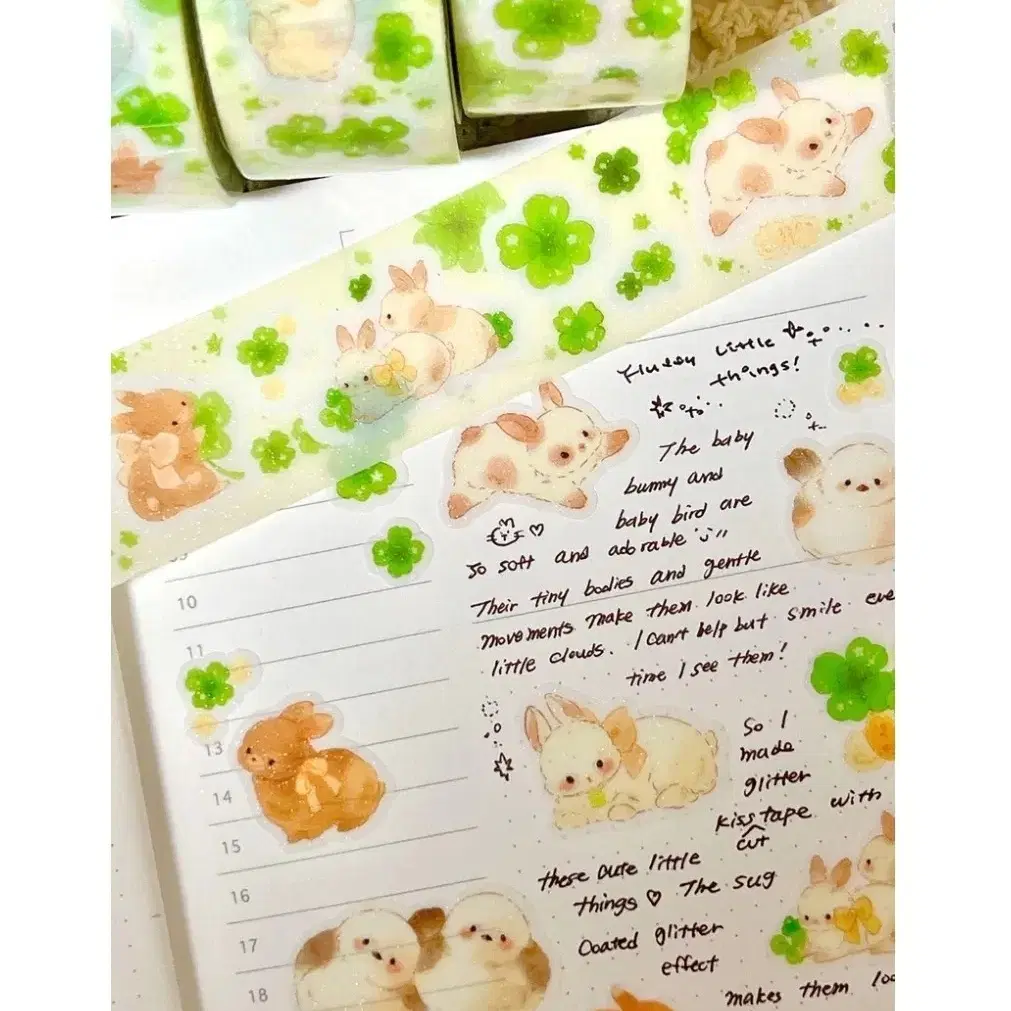 Fluffy little
things!
The baby
bunny and
baby bird are
so soft and adorable
Their tiny bodies and gentle
movements make them look like
little clouds. I can't help but smile eve
time I see them!
10
11
13
14
15
16
17
18
So I
made
glitter
kiss tape with
cut
these cute little
things ♡ The sug
Coated glitter
effect
makes them loo